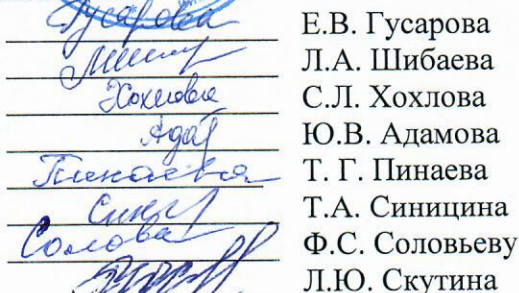 Гусарова Е.В. Гусарова
Л.А. Шибаева
Хохлова С.Л. Хохлова
Адам Ю.В. Адамова
Пинаева Т. Г. Пинаева
Синиц Т.А. Синицина
Солова Ф.С. Соловьеву
Л.Ю. Скутина